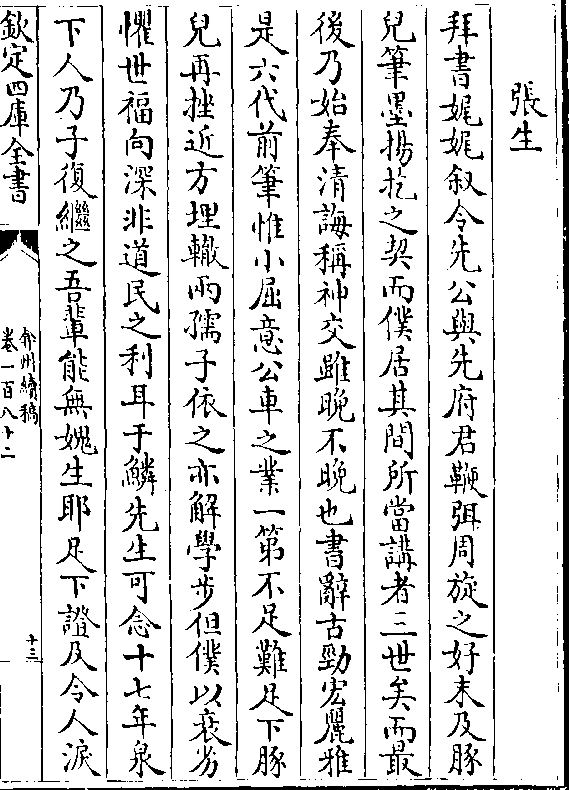 張生
拜書娓娓叙令先公與先府君鞭弭周旋之好末及豚
兒筆墨揚扢之契而僕居其間所當講者三世矣而最
後乃始奉清誨稱神交雖晚不晚也書辭古勁宏麗雅
是六代前筆惟小屈意公車之業一第不足難足下豚
兒再挫近方埋轍兩孺子依之亦解學步但僕以衰劣
懼世福向深非道民之利耳于鱗先生可念十七年泉
下人乃子復繼之吾輩能無媿生耶足下證及令人淚
欽定四庫全書
弇州續稿
卷一百八十二
十三